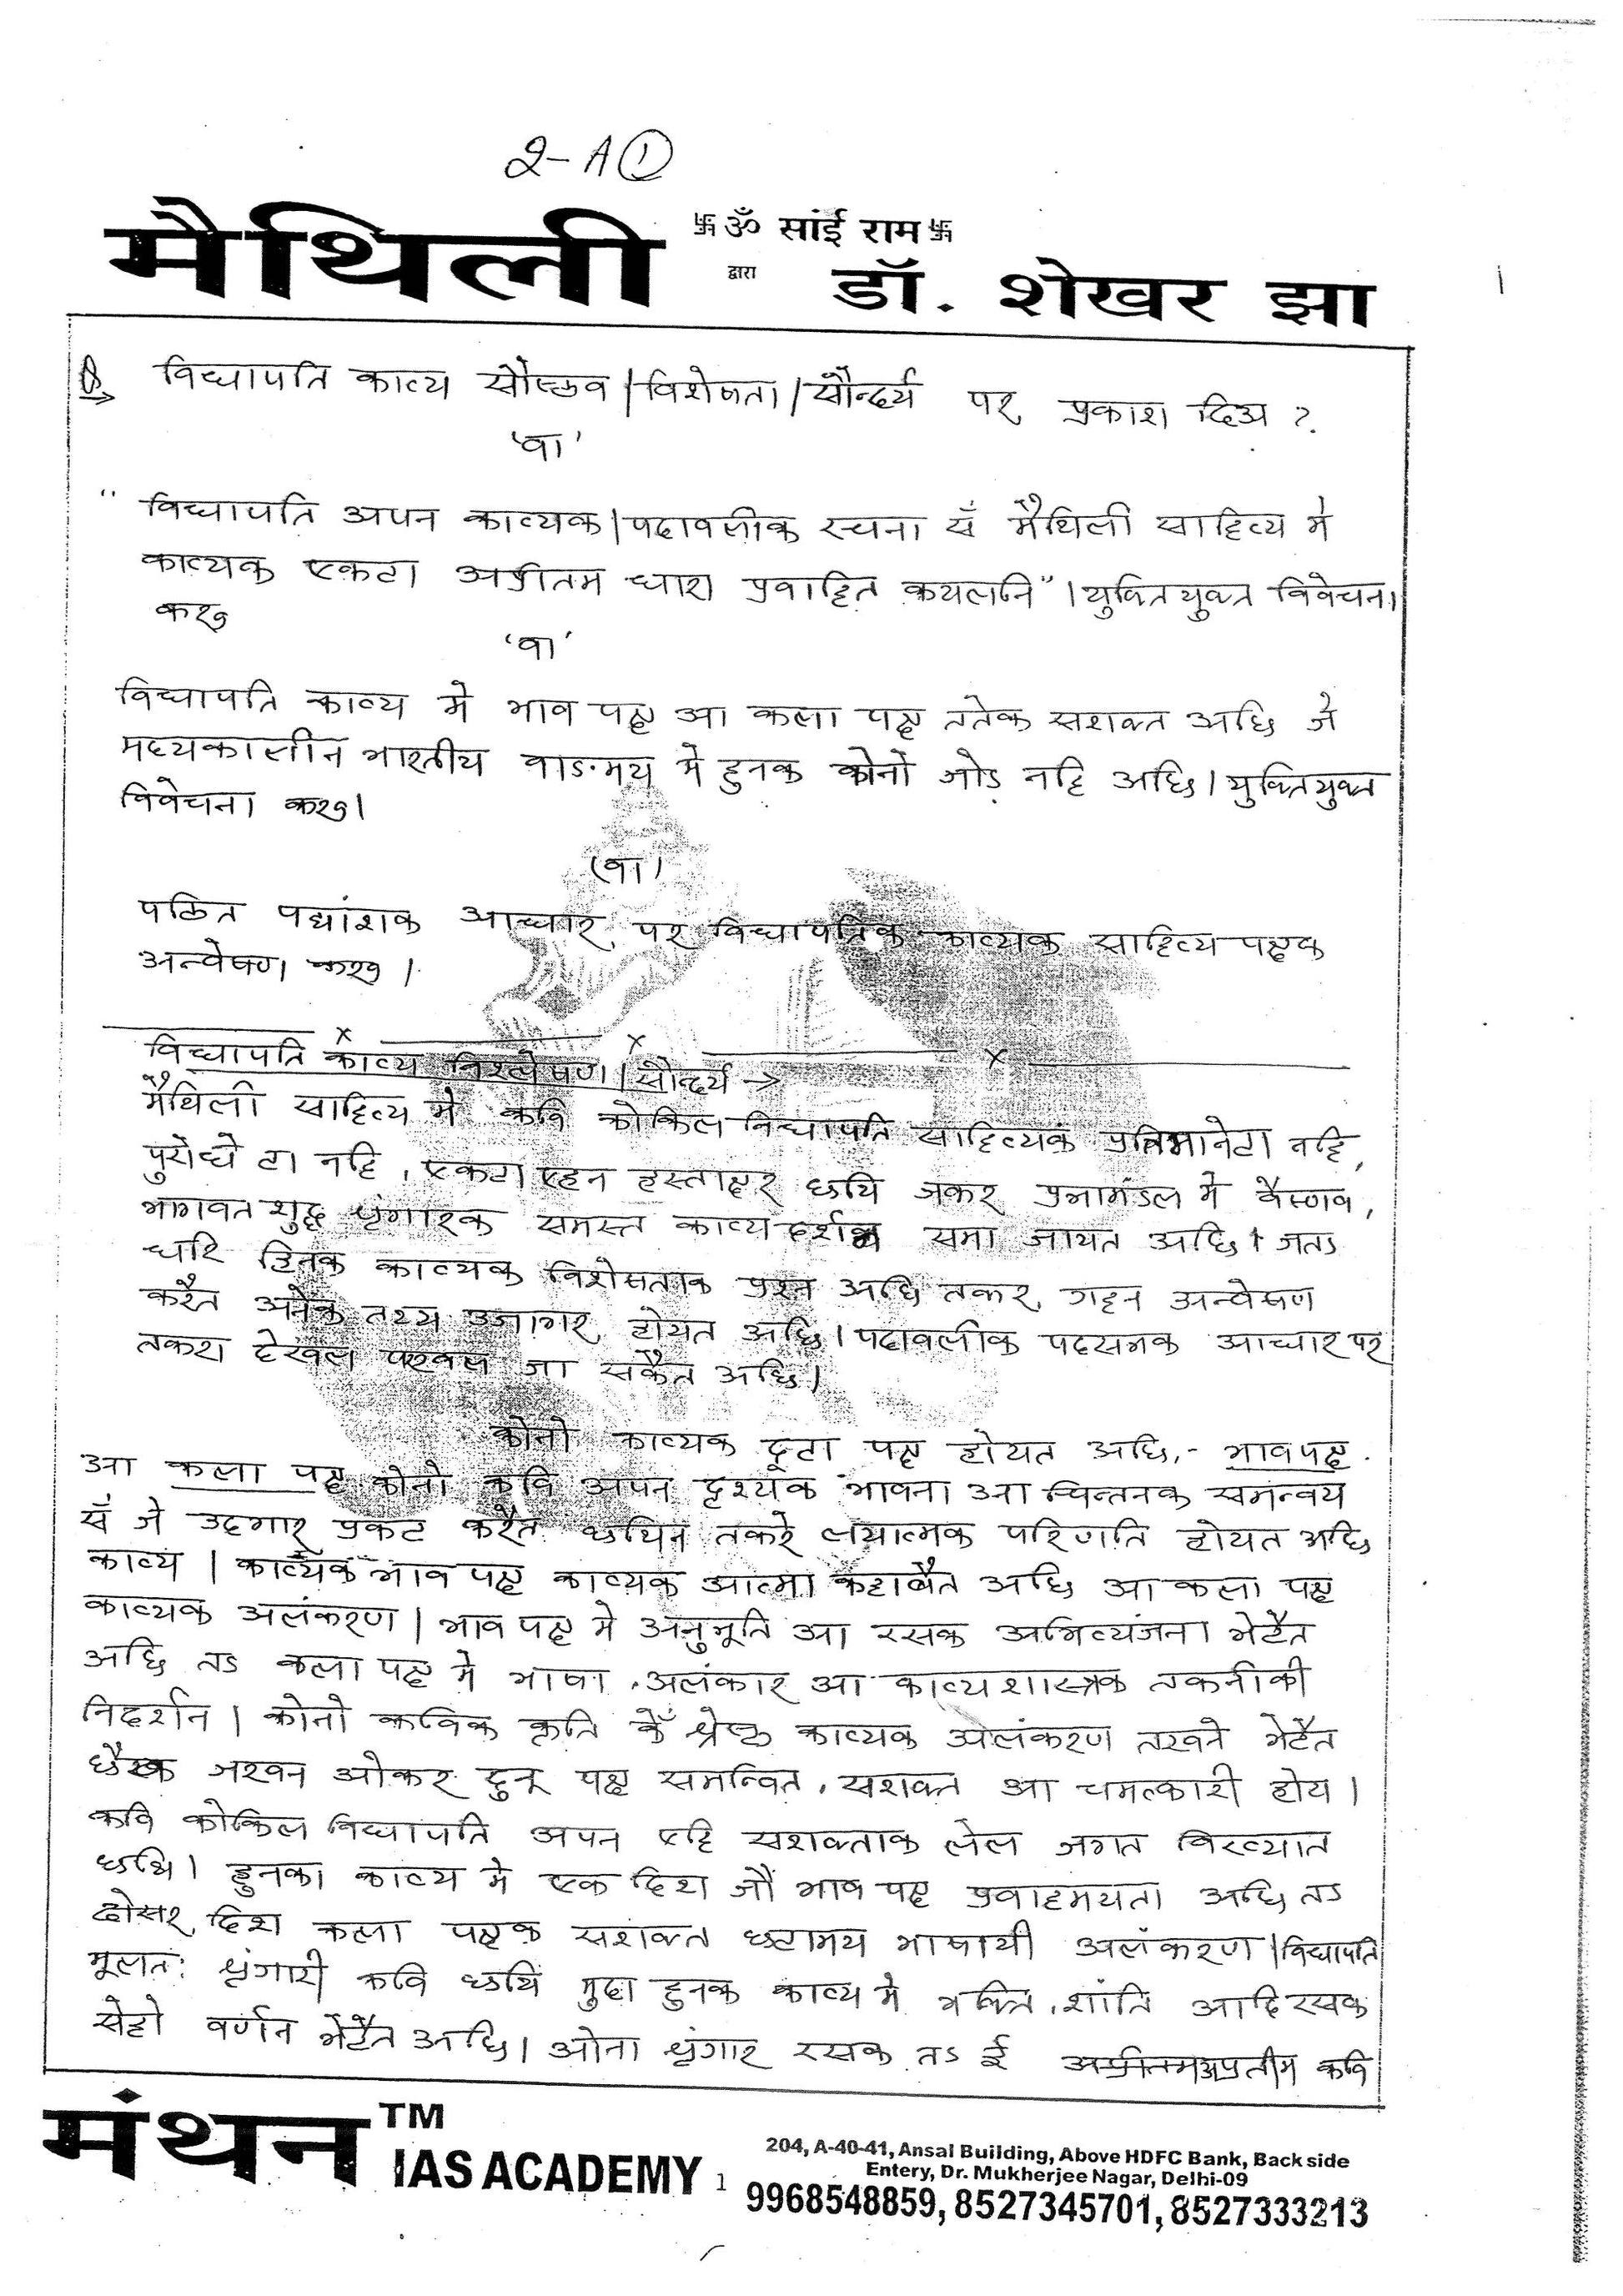 2-A①
मैथिली
卐 ॐ सांई राम 卐
द्वारा
डॉ. शेखर झा
Q विद्यापति काव्य सौष्ठव/विशेषता/सौन्दर्य पर प्रकाश दिअ ?
'वा'
"विद्यापति अपन काव्यक/पदावलीक रचना सँ मैथिली साहित्य मे
काव्यक एकटा अप्रीतम धारा प्रवाहित कयलनि"। युक्तियुक्त विवेचना
करू
'वा'
विद्यापति काव्य मे भाव पक्ष आ कला पक्ष ततेक सशक्त अछि जे
मध्यकालीन भारतीय वाङमय मे हुनक कोनो जोड़ नहि अछि। युक्तियुक्त
विवेचना करू।
(वा)
पठित पद्यांशक आधार पर विद्यापतिक काव्यक साहित्य पक्षक
अन्वेषण करू।
विद्यापति काव्य विश्लेषण/सौन्दर्य →
मैथिली साहित्य मे कवि कोकिल विद्यापति साहित्यिक प्रतिमानेटा नहि,
पुरोधे टा नहि, एकटा एहन हस्ताक्षर छथि जकर प्रभामंडल मे वैष्णव,
भागवत शुद्ध श्रृंगारक समस्त काव्य दर्शन समा जायत अछि। जतऽ
धरि हिनक काव्यक विशेषताक प्रश्न अछि तकर गहन अन्वेषण
करैत अनेक तथ्य उजागर होयत अछि। पदावलीक पदसभक आधार पर
तकरा देखल परखल जा सकैत अछि।
कोनो काव्यक दूटा पक्ष होयत अछि,- भावपक्ष
आ कला पक्ष कोनो कवि अपन हृदयक भावना आ चिन्तनक समन्वय
सँ जे उद्गार प्रकट करैत छथिन तकरे लयात्मक परिणति होयत अछि
काव्य। काव्यक भाव पक्ष काव्यक आत्मा कहाबैत अछि आ कला पक्ष
काव्यक अलंकरण। भाव पक्ष मे अनुभूति आ रसक अभिव्यंजना भेटैत
अछि तऽ कला पक्ष मे भाषा, अलंकार आ काव्यशास्त्रक तकनीकी
निदर्शन। कोनो कविक कृति केँ श्रेष्ठ काव्यक अलंकरण तखने भेटैत
छैक जखन ओकर दुनू पक्ष समन्वित, सशक्त आ चमत्कारी होय।
कवि कोकिल विद्यापति अपन एहि सशक्ताक लेल जगत विख्यात
छथि। हुनका काव्य मे एक दिश जौं भाव पक्ष प्रवाहमयता अछि तऽ
दोसर दिश कला पक्षक सशक्त छटामय भाषायी अलंकरण। विद्यापति
मूलतः श्रृंगारी कवि छथि मुदा हुनक काव्य मे भक्ति, शांति आदि रसक
सेहो वर्णन भेटैत अछि। ओना श्रृंगार रसक तऽ ई अप्रतीम कवि
मंथन™
IAS ACADEMY
1
204, A-40-41, Ansal Building, Above HDFC Bank, Back side
Entery, Dr. Mukherjee Nagar, Delhi-09
9968548859, 8527345701, 8527333213